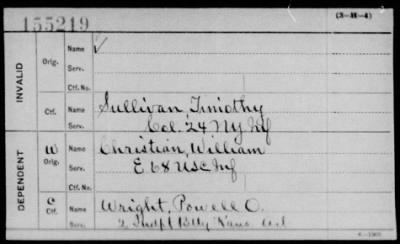 155219
(3-H-4)
INVALID
Orig. Name √
Serv.
Ctf. No.
Ctf. Sullivan, Timothy
Col. 24 NY Inf
DEPENDENT
W Orig. Name Christian, William
Serv. E 68 USC Inf
Ctf. No.
C Ctf. Wright, Powell O.
2 Indpt Btty Kans. Art